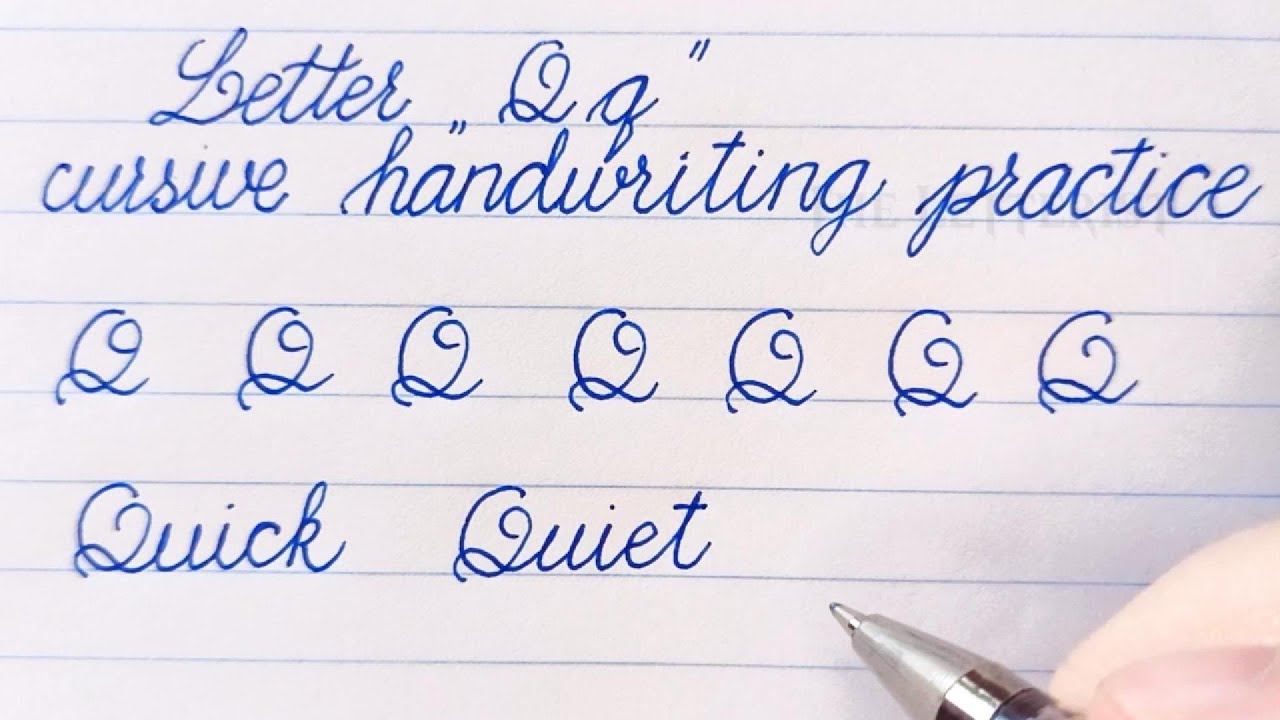 Letter „Qq"
cursive handwriting practice
Q Q Q Q Q Q Q
Quick Quiet